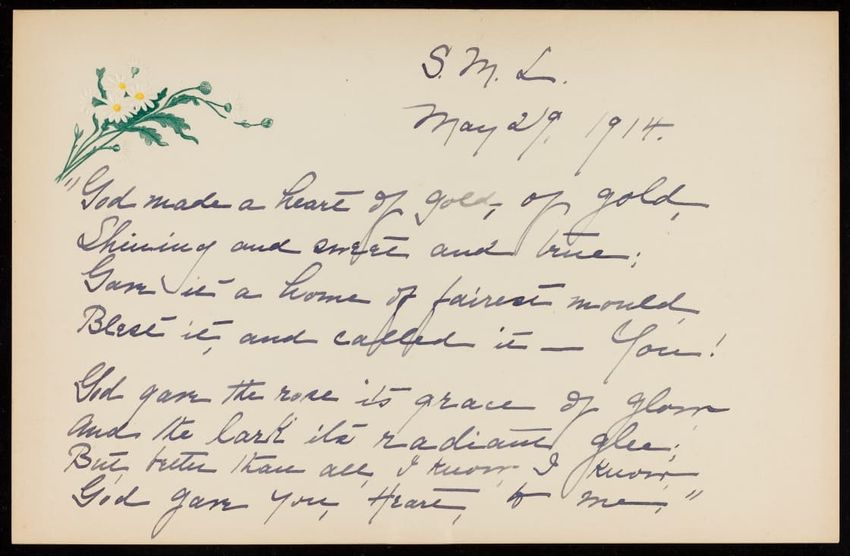 S. M. L.
May 29, 1914.
"God made a heart of gold, of gold,
Shining and sweet and true;
Gave it a home of fairest mould,
Blest it, and called it — You!
God gave the rose its grace of glow,
And the lark its radiant glee;
But, better than all, I know, I know,
God gave you, Heart, to me."